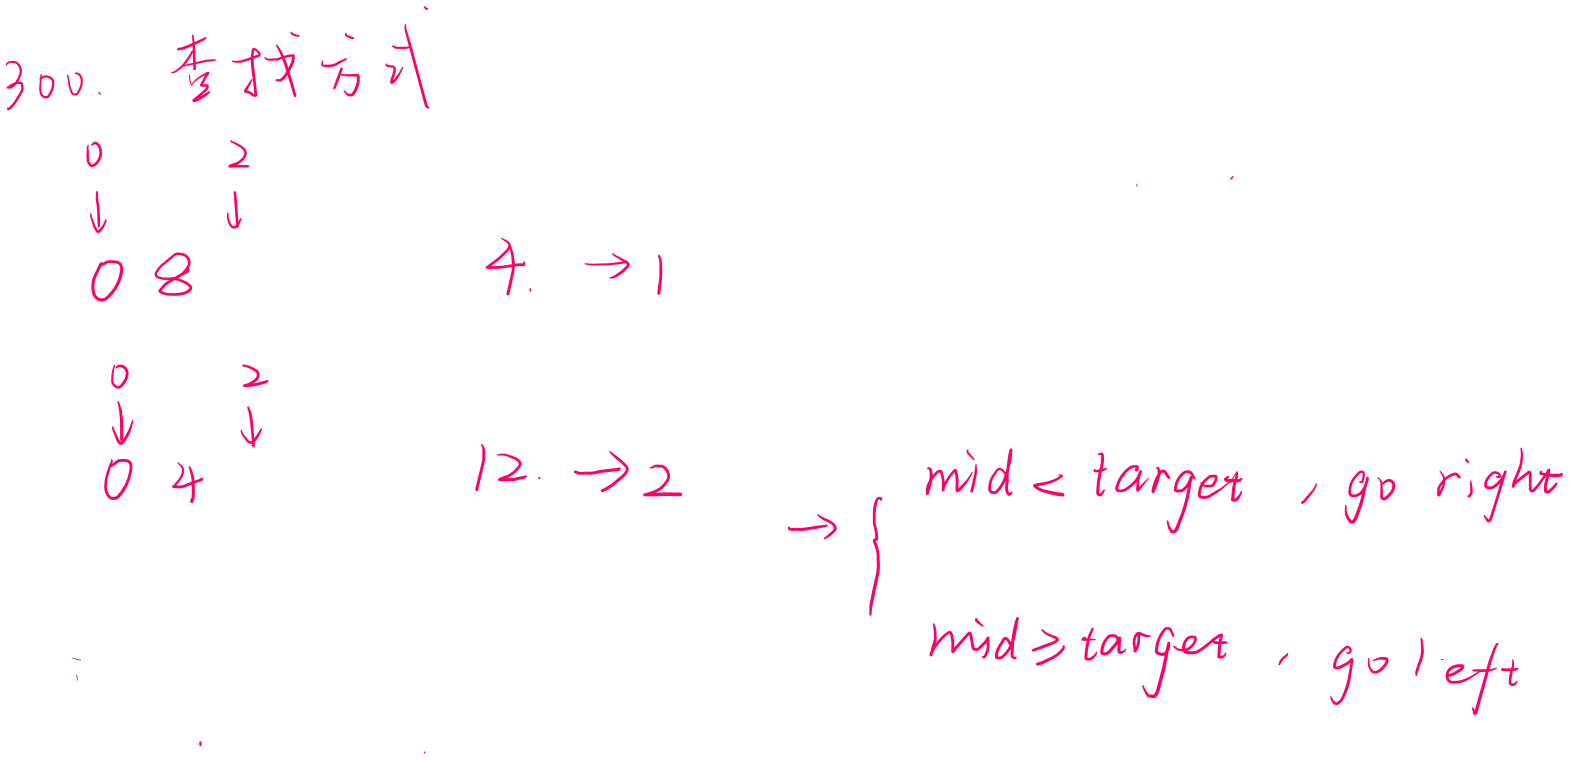 300. 查找方式
0 2
↓ ↓
0 8 4. → 1
0 2
↓ ↓
0 4 12. → 2
→ { mid < target, go right
mid ≥ target, go left